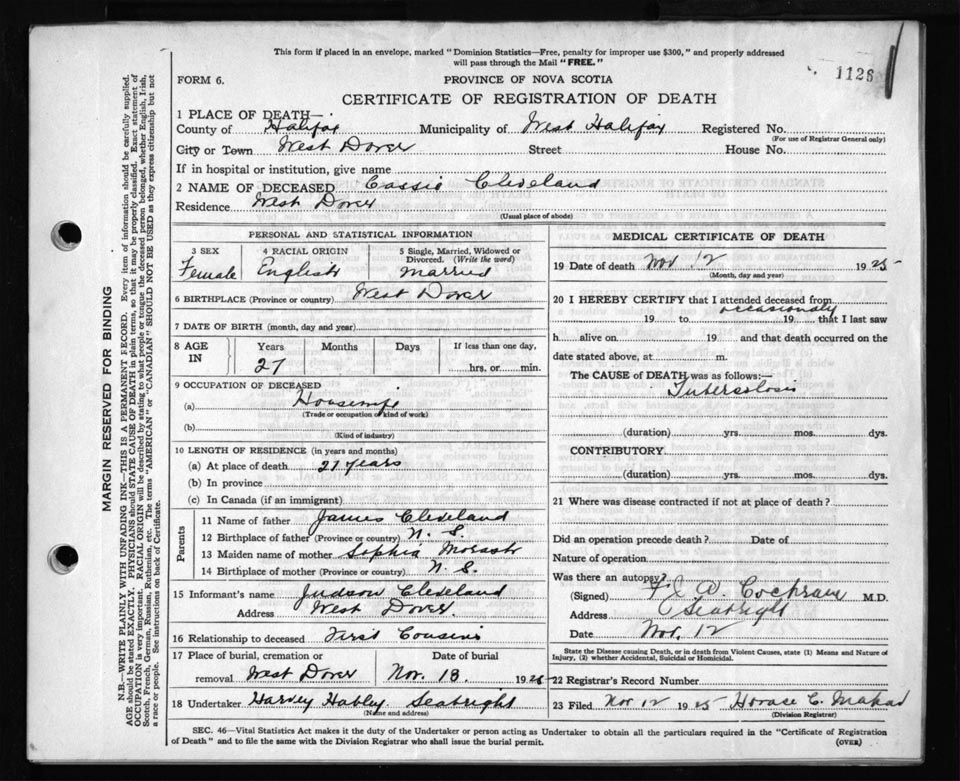 This form if placed in an envelope, marked "Dominion Statistics—Free, penalty for improper use $300," and properly addressed
will pass through the Mail "FREE."
1126
FORM 6.
PROVINCE OF NOVA SCOTIA
CERTIFICATE OF REGISTRATION OF DEATH
1 PLACE OF DEATH—
County of Halifax Municipality of West Halifax Registered No.
(For use of Registrar General only)
City or Town West Dover Street House No.
If in hospital or institution, give name
2 NAME OF DECEASED Cassie Cleveland
Residence West Dover
(Usual place of abode)
PERSONAL AND STATISTICAL INFORMATION
3 SEX 4 RACIAL ORIGIN 5 Single, Married, Widowed or Divorced. (Write the word)
Female English Married
6 BIRTHPLACE (Province or country) West Dover
7 DATE OF BIRTH (month, day and year)
8 AGE IN Years Months Days If less than one day,
27 hrs. or min.
9 OCCUPATION OF DECEASED
(a) Housewife
(Trade or occupation or kind of work)
(b)
(Kind of industry)
10 LENGTH OF RESIDENCE (in years and months)
(a) At place of death 27 years
(b) In province
(c) In Canada (if an immigrant)
Parents
11 Name of father James Cleveland
12 Birthplace of father (Province or country) N. S.
13 Maiden name of mother Sophia
14 Birthplace of mother (Province or country) N. S.
15 Informant's name Judson Cleveland
Address West Dover.
16 Relationship to deceased First Cousin
17 Place of burial, cremation or removal Date of burial
West Dover Nov. 13. 1925
18 Undertaker Harvey Hubley Seabright
(Name and address)
MEDICAL CERTIFICATE OF DEATH
19 Date of death Nov 12 1925
(Month, day and year)
20 I HEREBY CERTIFY that I attended deceased from
occasionally
19 to 19 that I last saw
h alive on 19 and that death occurred on the
date stated above, at m.
The CAUSE of DEATH was as follows:—
Tuberculosis
(duration) yrs. mos. dys.
CONTRIBUTORY
(duration) yrs. mos. dys.
21 Where was disease contracted if not at place of death?
Did an operation precede death? Date of
Nature of operation
Was there an autopsy?
(Signed) Cochrane M.D.
Address Seabright
Date Nov. 12
State the Disease causing Death, or in death from Violent Causes, state (1) Means and Nature of
Injury, (2) whether Accidental, Suicidal or Homicidal.
22 Registrar's Record Number
23 Filed Nov 12 1925 Horace C.
(Division Registrar)
SEC. 46—Vital Statistics Act makes it the duty of the Undertaker or person acting as Undertaker to obtain all the particulars required in the "Certificate of Registration
of Death" and to file the same with the Division Registrar who shall issue the burial permit.
(OVER)
MARGIN RESERVED FOR BINDING
N.B.—WRITE PLAINLY WITH UNFADING INK—THIS IS A PERMANENT RECORD. Every item of information should be carefully supplied.
AGE should be stated EXACTLY. PHYSICIANS should STATE CAUSE OF DEATH in plain terms, so that it may be properly classified. Exact statement of
OCCUPATION is very important. RACIAL ORIGIN will be described by stating to what people or tongue the deceased person belonged, whether English, Irish,
Scotch, French, German, Russian, Ruthenian, etc. The terms "AMERICAN" or "CANADIAN" SHOULD NOT BE USED as they express citizenship but not
a race or people. See instructions on back of Certificate.